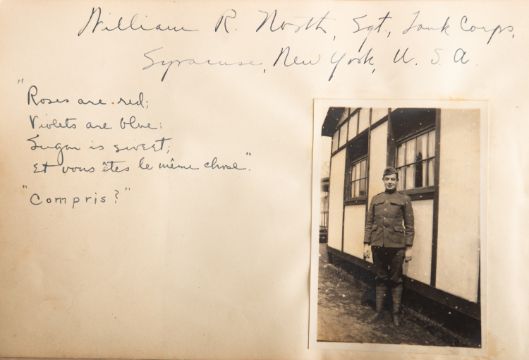 William R. North, Sgt, Tank Corps,
Syracuse, New York, U. S. A.
"Roses are red;
Violets are blue;
Sugar is sweet;
Et vous êtes le même chose".
"Compris?"